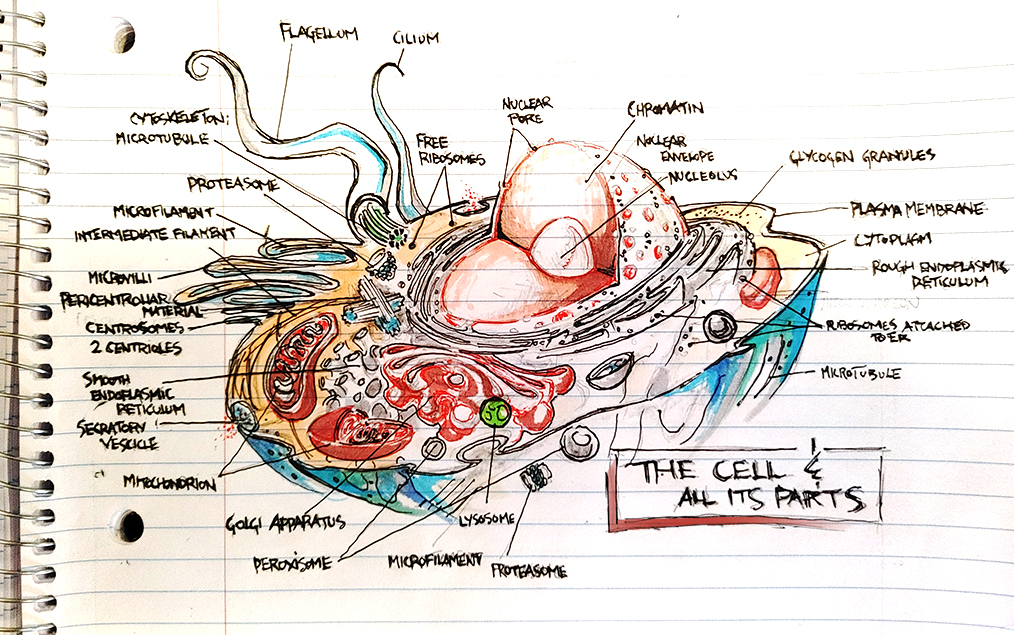 FLAGELLUM
CILIUM
CYTOSKELETON:
MICROTUBULE
FREE
RIBOSOMES
NUCLEAR
PORE
CHROMATIN
NUCLEAR
ENVELOPE
NUCLEOLUS
GLYCOGEN GRANULES
PROTEASOME
MICROFILAMENT
INTERMEDIATE FILAMENT
PLASMA MEMBRANE
CYTOPLASM
ROUGH ENDOPLASMIC
RETICULUM
MICROVILLI
PERICENTRIOLAR
MATERIAL
CENTROSOMES
2 CENTRIOLES
RIBOSOMES ATTACHED
TO ER
MICROTUBULE
SMOOTH
ENDOPLASMIC
RETICULUM
SECRATORY
VESCICLE
MITOCHONDRION
GOLGI APPARATUS
PEROXISOME
LYSOSOME
MICROFILAMENT
PROTEASOME
THE CELL &
ALL ITS PARTS